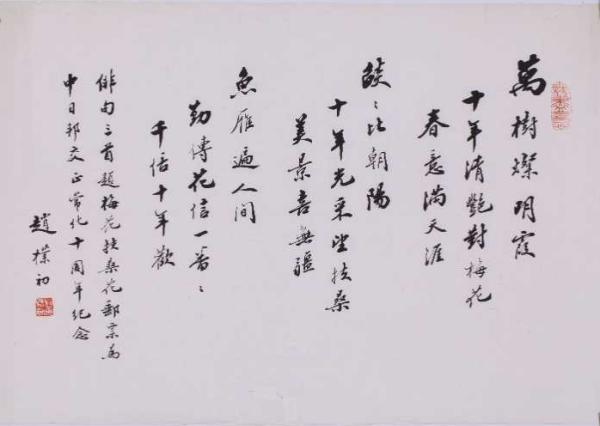 萬樹燦明霞
十年清艷對梅花
春意滿天涯
燄〻比朝陽
十年光采望扶桑
美景喜無疆
魚雁遍人间
勤傳花信一番〻
千倍十年歡
俳句三首題梅花扶桑花郵票為
中日邦交正常化十周年纪念
趙樸初